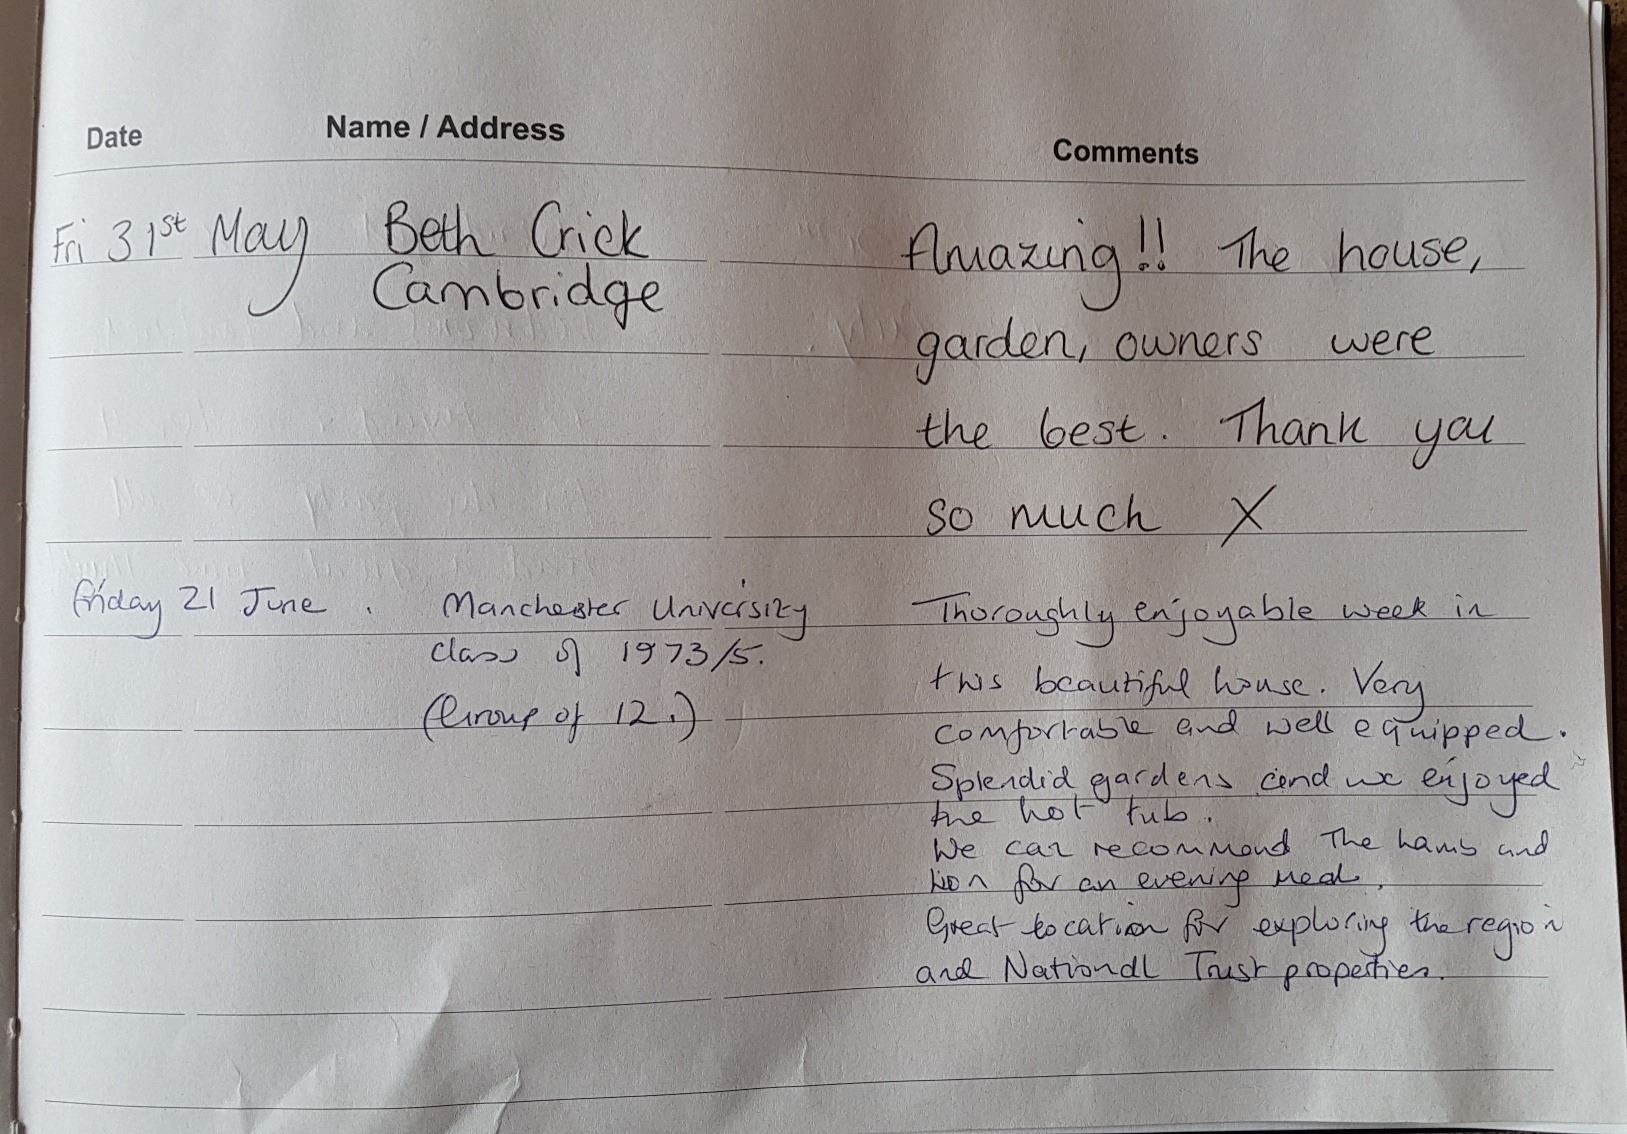 Date Name / Address Comments
Fri 31st May Beth Crick
Cambridge
Amazing!! The house,
garden, owners were
the best. Thank you
so much X
Friday 21 June. Manchester University
class of 1973/5.
(Group of 12.)
Thoroughly enjoyable week in
this beautiful house. Very
comfortable and well equipped.
Splendid gardens and we enjoyed
the hot tub.
We can recommend The Lamb and
Lion for an evening meal.
Great location for exploring the region
and National Trust properties.